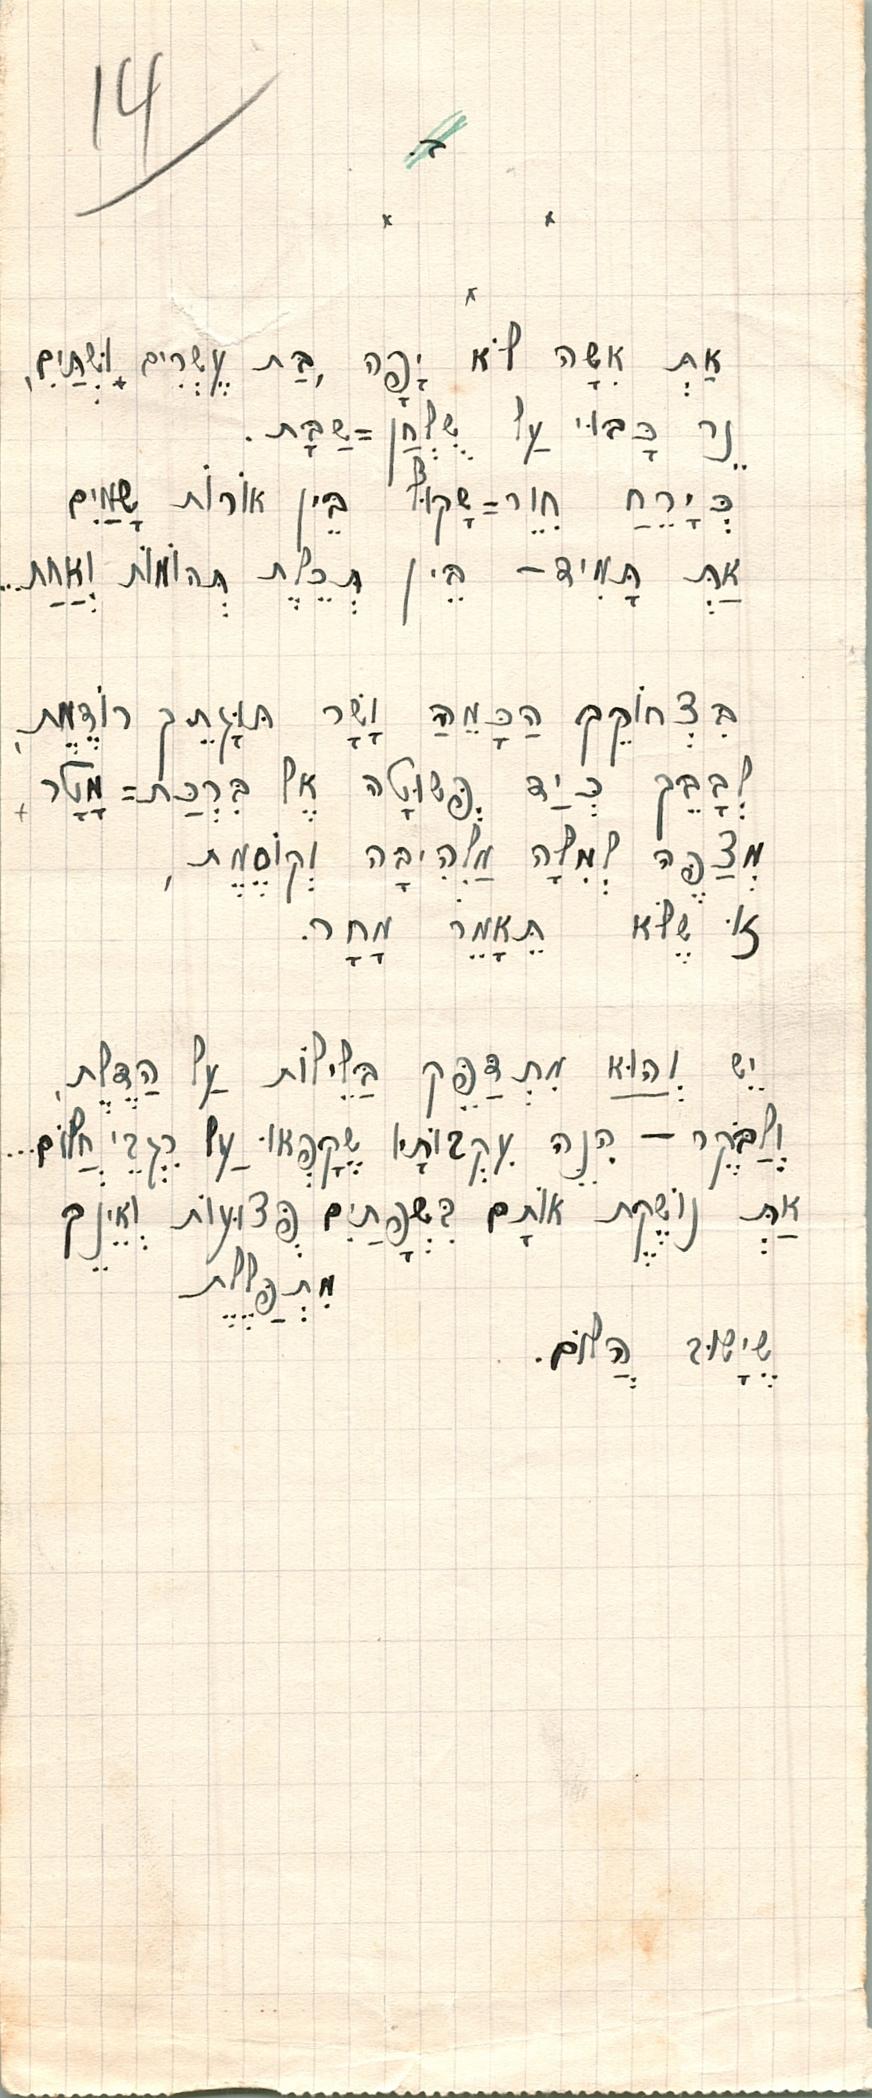 14
ב.
אַתְּ אִשָּׁה לֹא יָפָה, בַּת עֶשְׂרִים וּשְׁתַּיִם,
נֵר כָּבוּי עַל שֻׁלְחַן=שַׁבָּת.
כְּיָרֵחַ חִוֵּר=שָׁקוּל בֵּין אוֹרוֹת שָׁמַיִם
אַתְּ תָּמִיד – בֵּין תְּכֵלֶת תְּהוֹמוֹת וְאַחַת...
בִּצְחוֹקֵךְ הַכָּמֵהַּ וָשָׁר תּוּגָתֵךְ רוֹדֶמֶת,
לְבָבֵךְ כְּיַד פְּשׁוּטָה אֶל בִּרְכַּת=מָטָר
מְצַפֶּה לְמִלָּה מַלְהִיבָה וְקוֹסֶמֶת,
זוֹ שֶׁלֹּא תֵּאָמֵר מָחָר.
יֵשׁ וְהוּא מִתְדַּפֵּק בַּלֵּילוֹת עַל הַדֶּלֶת,
וְלַבֹּקֶר – הִנֵּה עִקְבוֹתָיו שֶׁקָּפְאוּ עַל רִגְבֵי חֲלוֹם...
אַתְּ נוֹשֶׁקֶת אוֹתָם בִּשְׂפָתַיִם פְּצוּעוֹת וְאֵינֵךְ
מִתְפַּלֶּלֶת
שֶׁיָּשׁוּב הֲלוֹם.